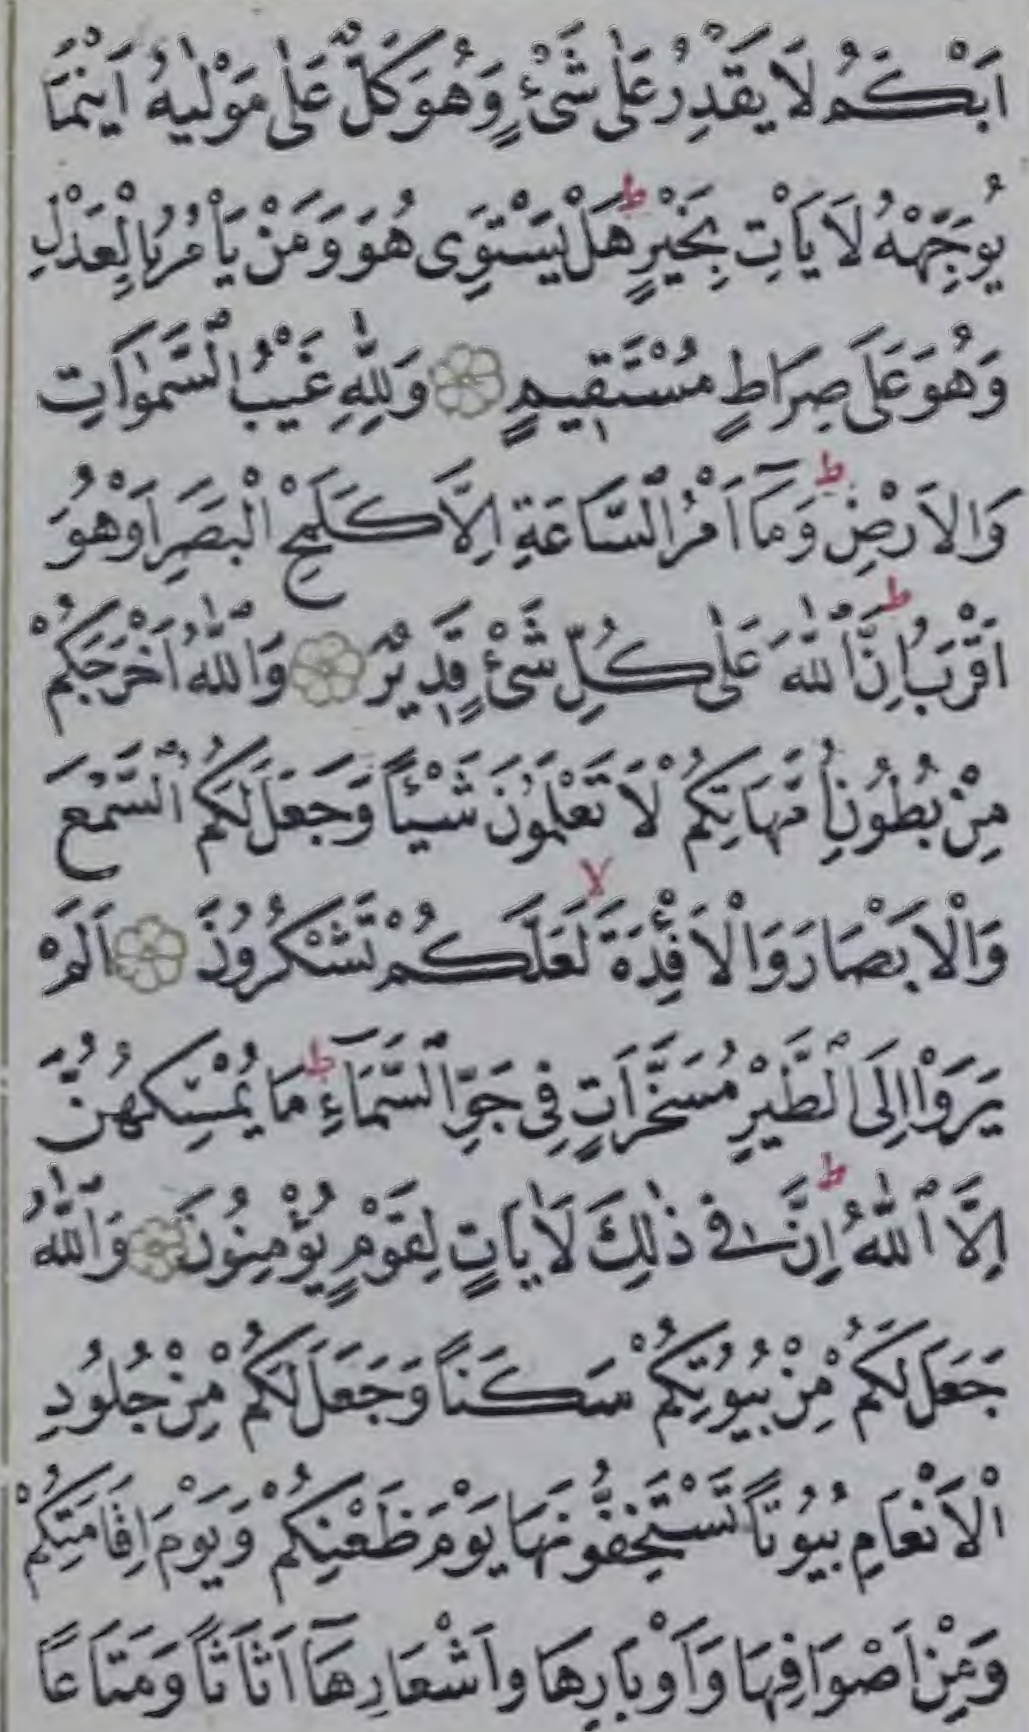 اَبْكَمُ لَا يَقْدِرُ عَلٰى شَىْءٍ وَهُوَ كَلٌّ عَلٰى مَوْلٰيهُ اَيْنَمَا
يُوَجِّهْهُ لَا يَأْتِ بِخَيْرٍ ط هَلْ يَسْتَوِى هُوَ وَمَنْ يَأْمُرُ بِالْعَدْلِ
وَهُوَ عَلَى صِرَاطٍ مُسْتَقِيمٍ وَلِلّٰهِ غَيْبُ السَّمٰوَاتِ
وَالْاَرْضِ ط وَمَآ اَمْرُ السَّاعَةِ اِلَّا كَلَمْحِ الْبَصَرِ اَوْ هُوَ
اَقْرَبُ ط اِنَّ اللّٰهَ عَلٰى كُلِّ شَىْءٍ قَدِيرٌ وَاللّٰهُ اَخْرَجَكُمْ
مِنْ بُطُونِ اُمَّهَاتِكُمْ لَا تَعْلَمُونَ شَيْئًا وَجَعَلَ لَكُمُ السَّمْعَ
وَالْاَبْصَارَ وَالْاَفْئِدَةَ لا لَعَلَّكُمْ تَشْكُرُونَ اَلَمْ
يَرَوْا اِلَى الطَّيْرِ مُسَخَّرَاتٍ فِى جَوِّ السَّمَآءِ ط مَا يُمْسِكُهُنَّ
اِلَّا اللّٰهُ ط اِنَّ فِى ذٰلِكَ لَاٰيَاتٍ لِقَوْمٍ يُؤْمِنُونَ وَاللّٰهُ
جَعَلَ لَكُمْ مِنْ بُيُوتِكُمْ سَكَنًا وَجَعَلَ لَكُمْ مِنْ جُلُودِ
الْاَنْعَامِ بُيُوتًا تَسْتَخِفُّونَهَا يَوْمَ ظَعْنِكُمْ وَيَوْمَ اِقَامَتِكُمْ
وَمِنْ اَصْوَافِهَا وَاَوْبَارِهَا وَاَشْعَارِهَآ اَثَاثًا وَمَتَاعًا